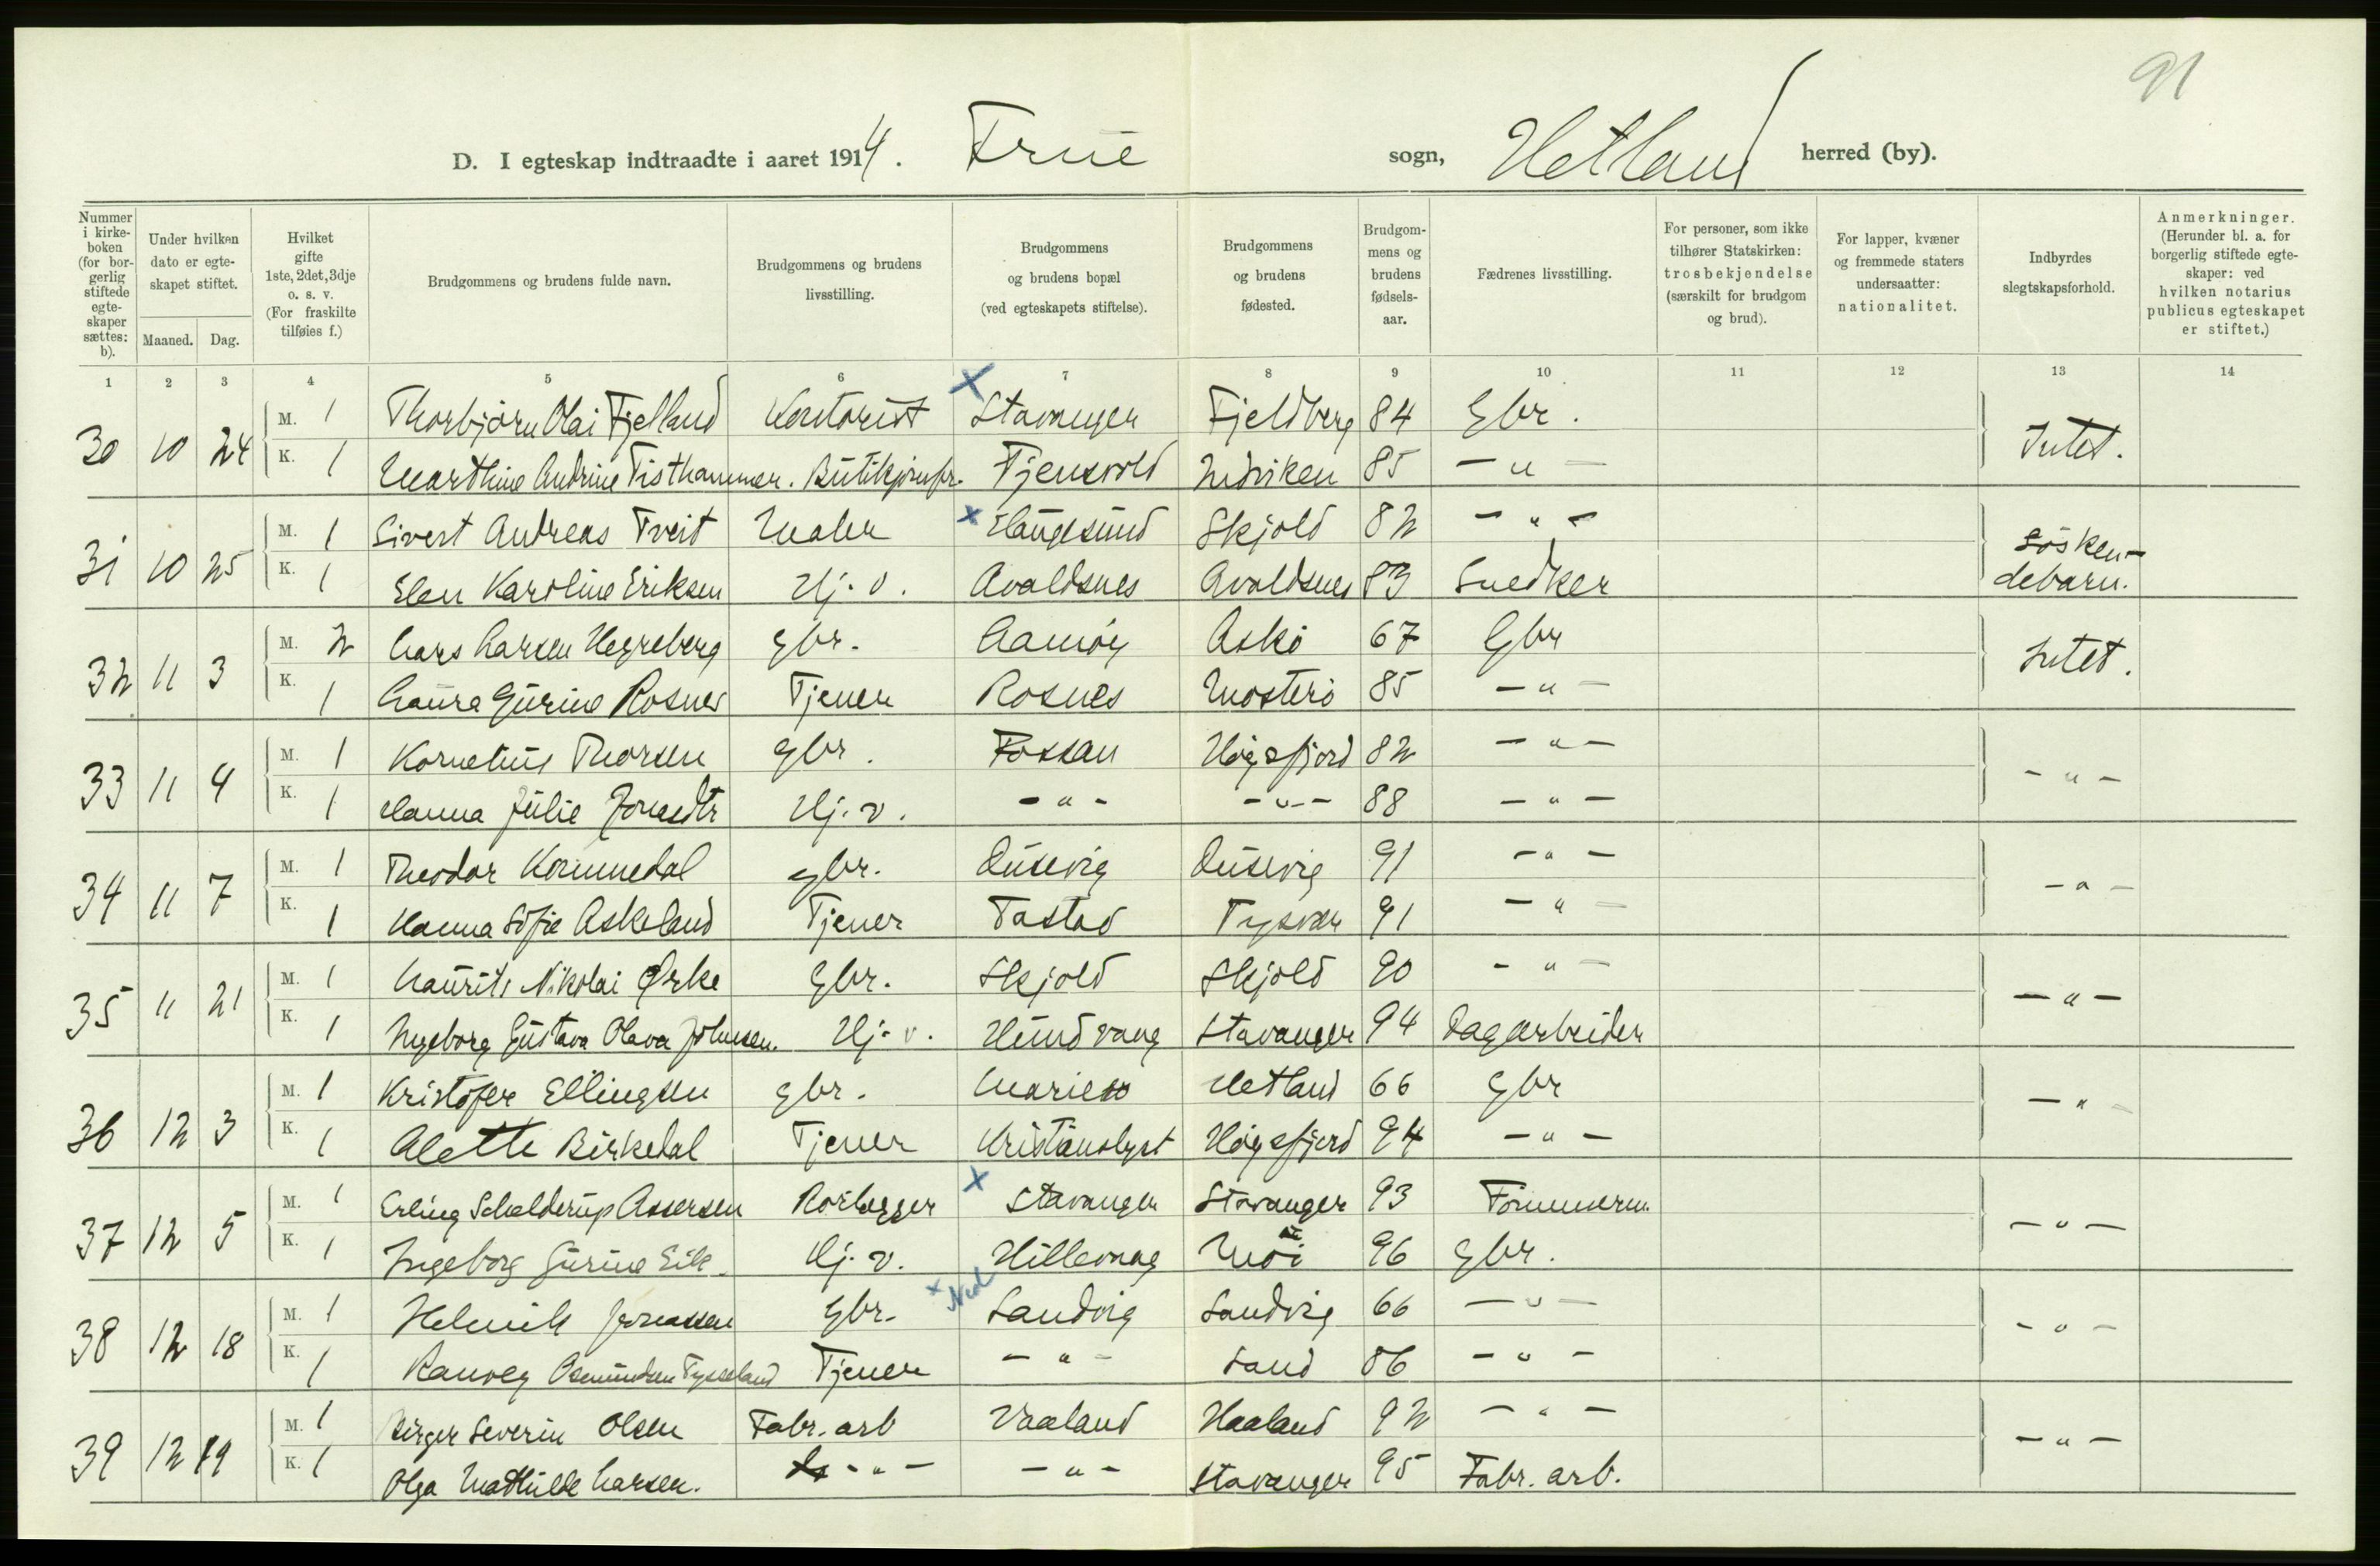 91
D. I egteskap indtraadte i aaret 1914. Frue sogn, Hetland herred (by).
Nummer i kirkeboken (for borgerlig stiftede egteskaper sættes: b).
Under hvilken dato er egteskapet stiftet.
Maaned. Dag.
Hvilket gifte 1ste, 2det, 3dje o. s. v. (For fraskilte tilføies f.)
Brudgommens og brudens fulde navn.
Brudgommens og brudens livsstilling.
Brudgommens og brudens bopæl (ved egteskapets stiftelse).
Brudgommens og brudens fødested.
Brudgommens og brudens fødselsaar.
Fædrenes livsstilling.
For personer, som ikke tilhører Statskirken: trosbekjendelse (særskilt for brudgom og brud).
For lapper, kvæner og fremmede staters undersaatter: nationalitet.
Indbyrdes slegtskapsforhold.
Anmerkninger. (Herunder bl. a. for borgerlig stiftede egteskaper: ved hvilken notarius publicus egteskapet er stiftet.)
1 2 3 4 5 6 7 8 9 10 11 12 13 14
30 10 24 M. 1 Thorbjörn Olai Fjelland Kontorist x Stavanger Fjeldberg 84 Gbr. Intet.
K. 1 Marthine Andrine Tisthammer. Butikjomfr. Tjensvold Indviken 85 -"-
31 10 25 M. 1 Sivert Andreas Tveit Maler x Haugesund Skjold 82 -"- Söskendebarn.
K. 1 Elen Karoline Eriksen Hj. v. Avaldsnes Avaldsnes 83 Snedker
32 11 3 M. 2 Lars Larsen Hegreberg Gbr. Aamöy Askö 67 Gbr Intet.
K. 1 Laura Gurine Rosnes Tjener Rosnes Mosterö 85 -"-
33 11 4 M. 1 Kornelius Thorsen Gbr. Fossan Högsfjord 82 -"- -"-
K. 1 Hanna Julie Jonasdtr Hj. v. -"- -"- 88 -"-
34 11 7 M. 1 Theodor Kommedal Gbr. Dusevig Dusevig 91 -"- -"-
K. 1 Hanna Sofie Askeland Tjener Tastad Tysvær 91 -"-
35 11 21 M. 1 Laurits Nikolai Ørke Gbr. Skjold Skjold 90 -"- -"-
K. 1 Ingeborg Gustava Olava Johnsen. Hj. v. Hundvaag Stavanger 94 Dagarbeider
36 12 3 M. 1 Kristofer Ellingsen Gbr. Mariero Hetland 66 Gbr -"-
K. 1 Alette Birkedal Tjener Kristianslyst Högsfjord 94 -"-
37 12 5 M. 1 Erling Schelderup Assersen Rörlegger x Stavanger Stavanger 93 Tömmerm. -"-
K. 1 Ingeborg Gurine Eik. Hj. v. Hillevaag Moi 96 Gbr.
38 12 18 M. 1 Helmik Jonassen Gbr. x Ned Sandvig Sandvig 66 -"- -"-
K. 1 Ranveg Osmundsen Tysseland Tjener -"- Sand 86 -"-
39 12 19 M. 1 Birger Severin Olsen Fabr. arb Vaaland Haaland 92 -"- -"-
K. 1 Olga Mathilde Larsen. -"- -"- Stavanger 95 Fabr. arb.